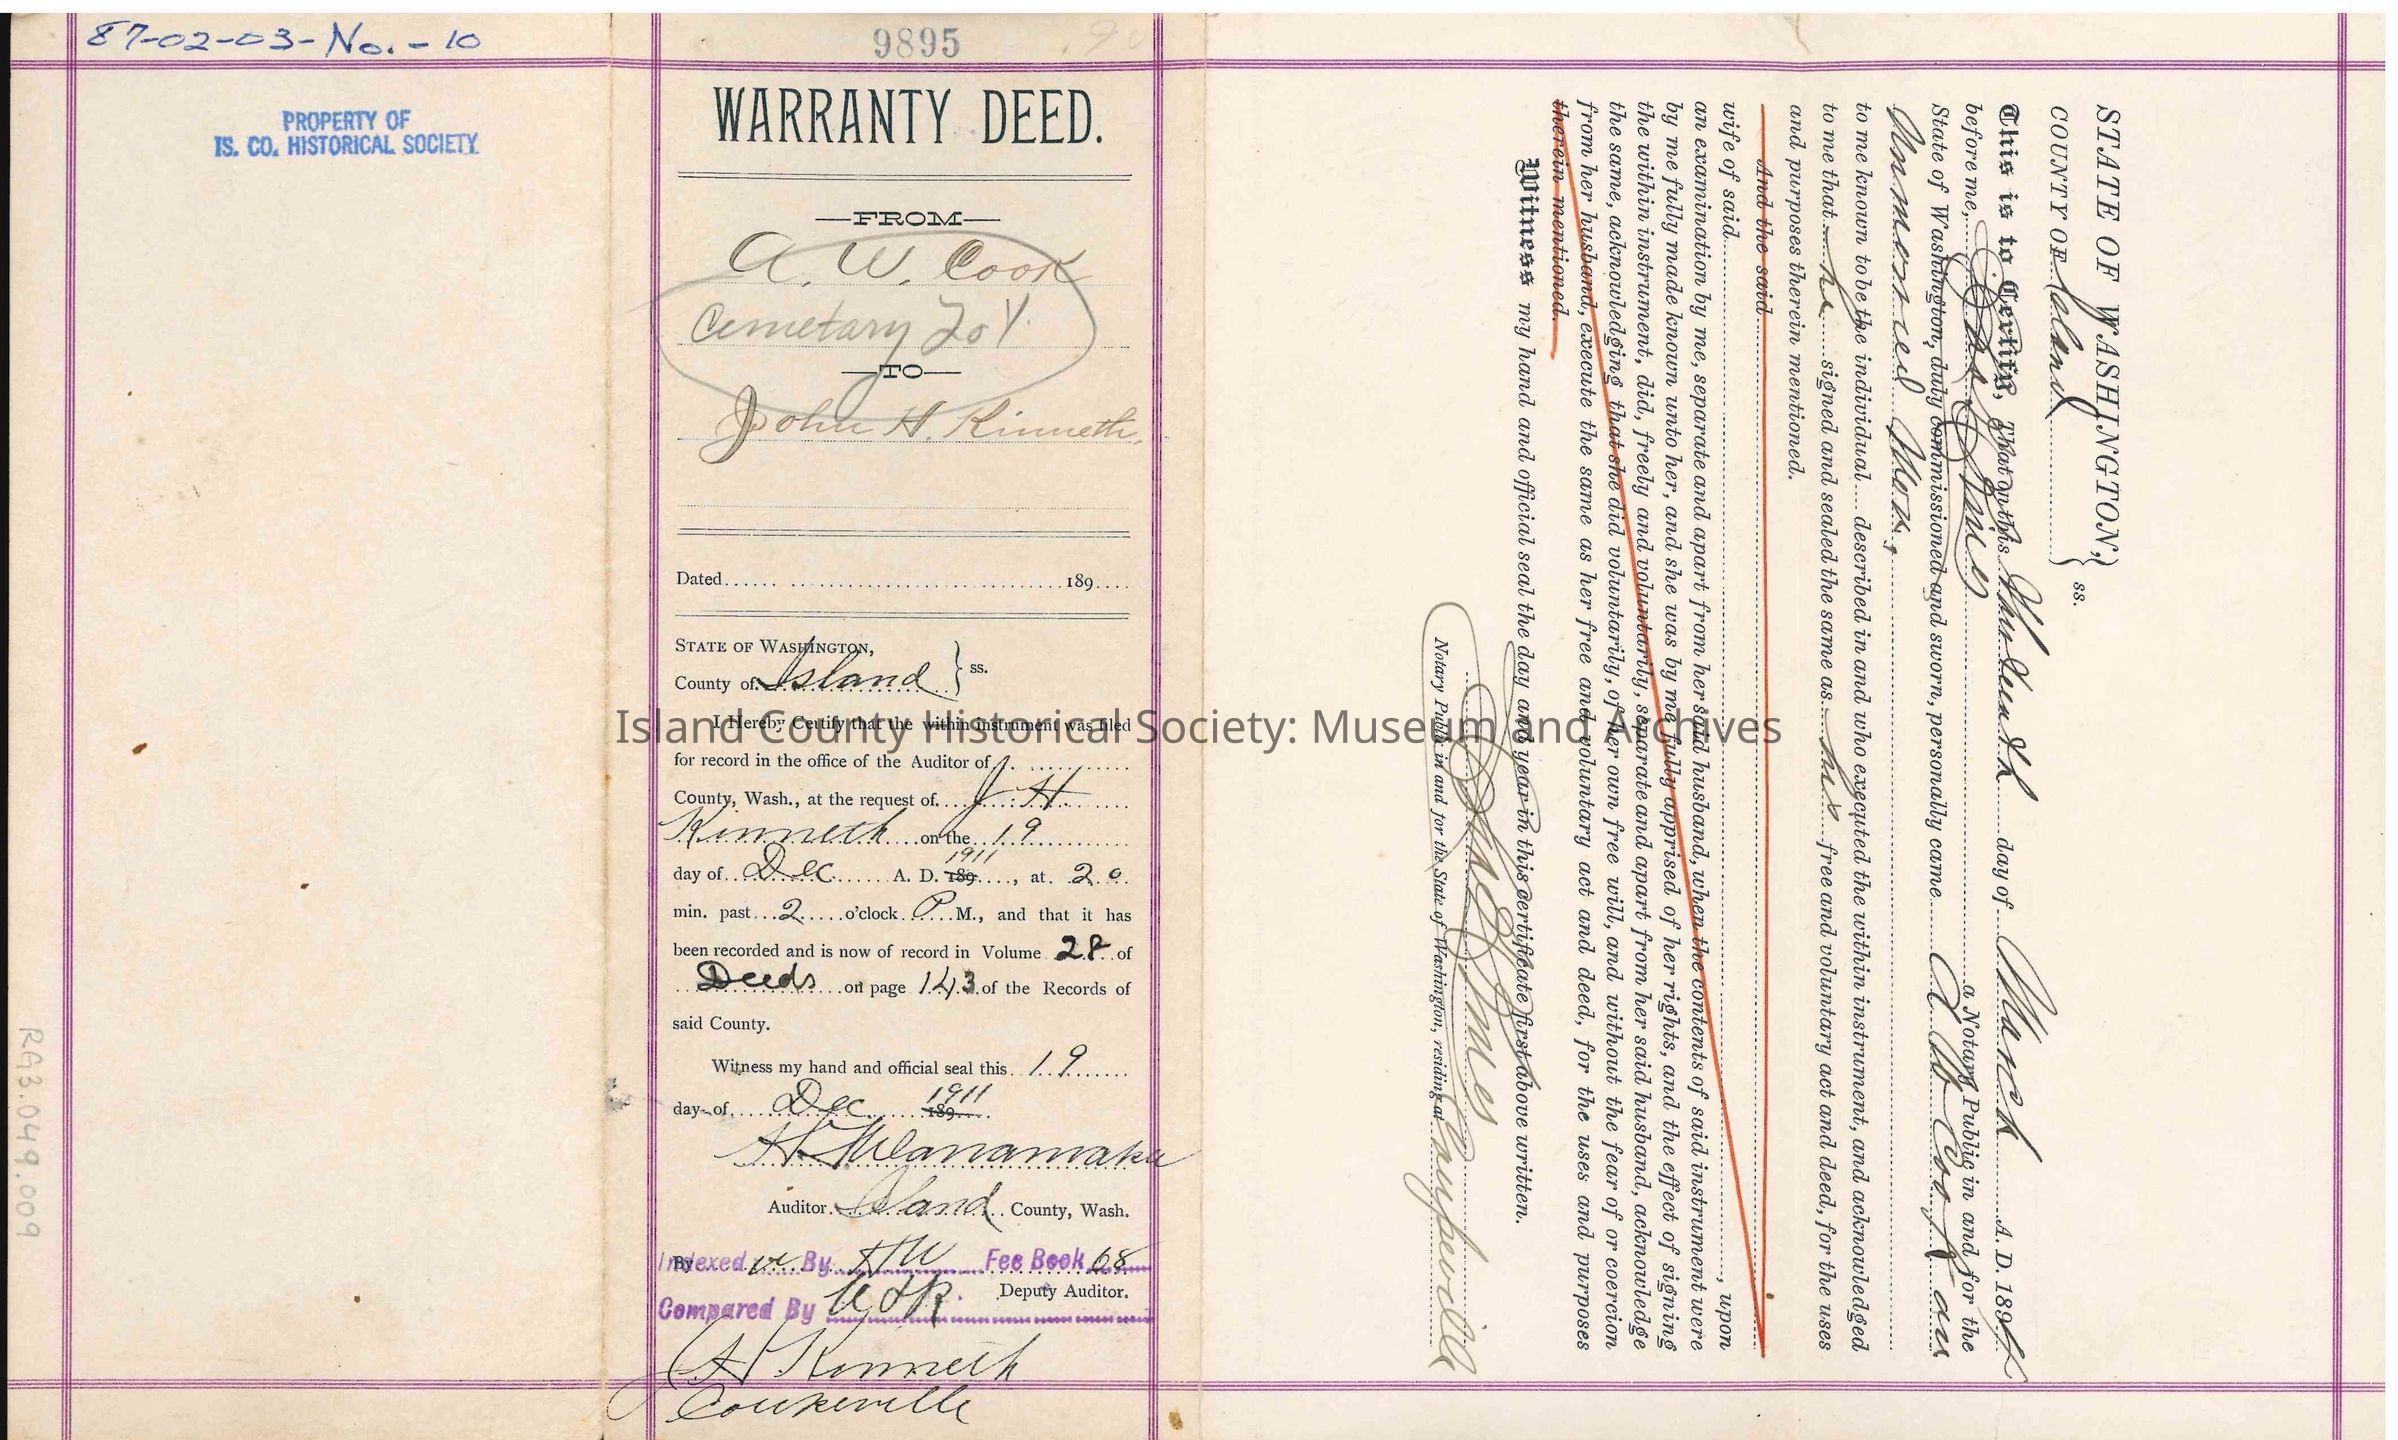 87-02-03-No.-10
PROPERTY OF
IS. CO. HISTORICAL SOCIETY
RG3.049.009
9895
WARRANTY DEED.
—FROM—
A. W. Cook
Cemetary Lot
—TO—
John H. Kinneth.
Dated 189
STATE OF WASHINGTON,
County of Island } ss.
I Hereby Certify that the within instrument was filed
for record in the office of the Auditor of
County, Wash., at the request of J. H
Kinneth on the 19
day of Dec A. D. 189 1911, at 20
min. past 2 o'clock P M., and that it has
been recorded and is now of record in Volume 28 of
Deeds on page 143 of the Records of
said County.
Witness my hand and official seal this 19
day of Dec 189 1911
Wanamaker
Auditor Island County, Wash.
By
Indexed By Fee Book 68
Deputy Auditor.
Compared By
Kinneth
Coupeville
STATE OF WASHINGTON,
COUNTY OF Island } ss.
This is to Certify, That on this day of March A. D. 189
before me, a Notary Public in and for the
State of Washington, duly commissioned and sworn, personally came A W Cook an
Unmarried Man,
to me known to be the individual described in and who executed the within instrument, and acknowledged
to me that he signed and sealed the same as his free and voluntary act and deed, for the uses
and purposes therein mentioned.
And the said
wife of said , upon
an examination by me, separate and apart from her said husband, when the contents of said instrument were
by me fully made known unto her, and she was by me fully apprised of her rights, and the effect of signing
the within instrument, did, freely and voluntarily, separate and apart from her said husband, acknowledge
the same, acknowledging that she did voluntarily, of her own free will, and without the fear of or coercion
from her husband, execute the same as her free and voluntary act and deed, for the uses and purposes
therein mentioned.
Witness my hand and official seal the day and year in this certificate first above written.
Notary Public in and for the State of Washington, residing at Coupeville
Island County Historical Society: Museum and Archives